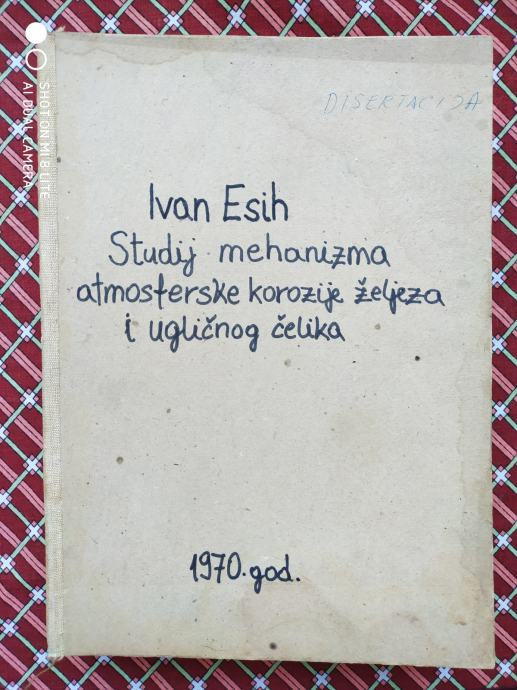 DISERTACIJA
Ivan Esih
Studij mehanizma
atmosferske korozije željeza
i ugličnog čelika
1970. god.
SHOT ON MI 8 LITE
AI DUAL CAMERA